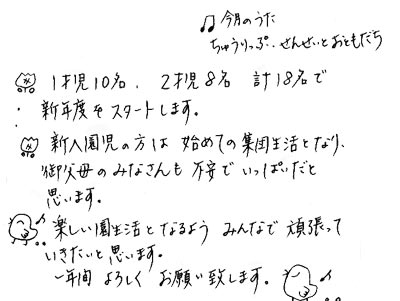 ♫ 今月のうた
ちゅうりっぷ・せんせいとおともだち
1才児10名、2才児8名 計18名で
新年度をスタートします。
新入園児の方は 始めての集団生活となり、
御父母のみなさんも 不安でいっぱいだと
思います。
楽しい園生活となるよう みんなで 頑張って
いきたいと思います。
一年間 よろしく お願い致します。